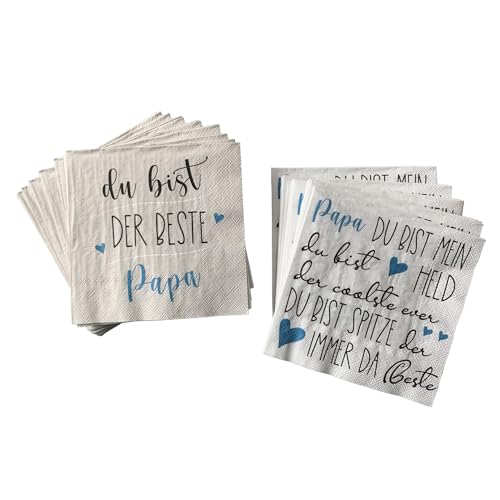 du bist
DER BESTE
Papa
DU BIST MEIN
Papa DU BIST MEIN
du bist HELD
der coolste ever
DU BIST SPITZE der
IMMER DA Beste